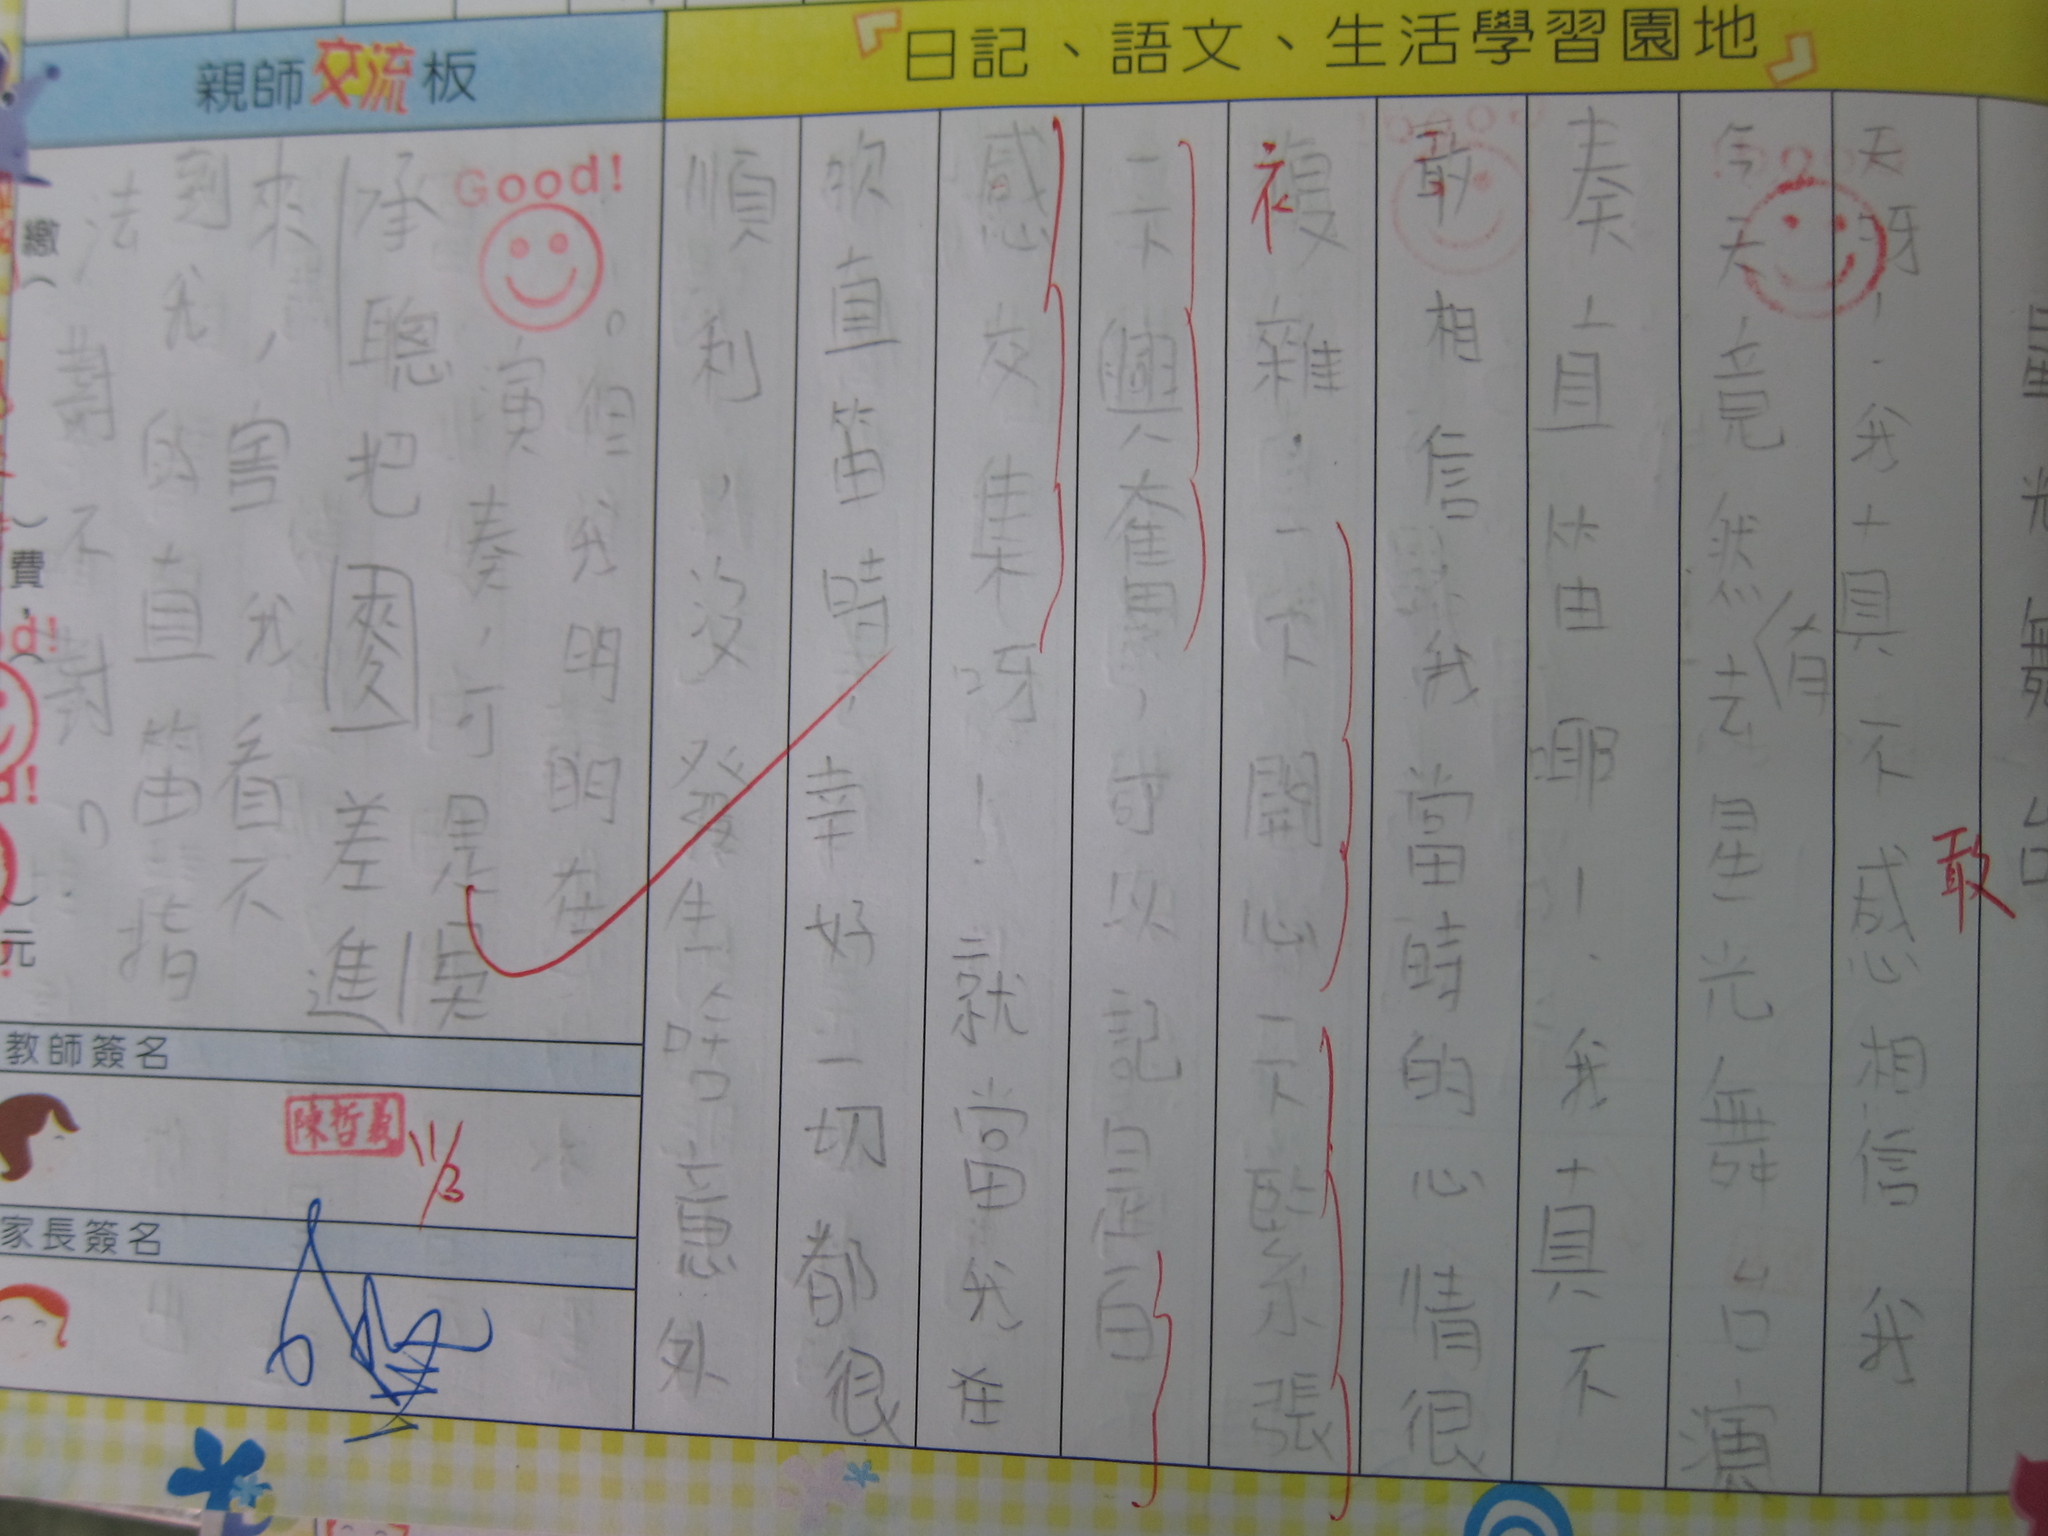 『日記、語文、生活學習園地』
親師交流板
星光舞台
天呀！我真不感相信我
敢
今天竟然有去星光舞台演
奏直笛耶！我真不
敢相信我當時的心情很
複雜．一下開心一下緊張
一下興奮，可以記是百
感交集呀！就當我在
吹直笛時，幸好一切都很
順利，沒發生啥意外
。但我明明在
演奏，可是吳
承聰把麥差進
來，害我看不
到我的直笛指
法對不對。
Good!
繳
費
元
教師簽名
陳哲義
11/3
家長簽名